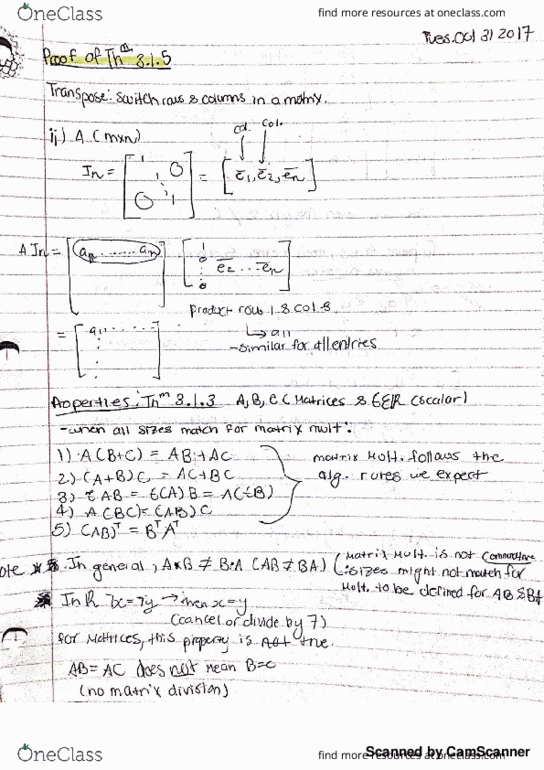 OneClass
find more resources at oneclass.com
Tues. Oct 31 2017
Proof of Thm 3.1.5
Transpose: switch rows & columns in a matrix.
ii) A (mxn)
col. col.
In = [1 1 0 0 1] = [e̅1, e̅2, e̅n]
A In = [a11 ...... a1n] [1 0 : 0 e̅2 ... e̅n]
product row 1 & col 1
= [a11 ....] ↳ a11
- similar for all entries
Properties: Thm 3.1.3 A, B, & C Matrices & t∈ℝ (scalar)
- when all sizes match for matrix mult:
1) A(B+C) = AB+AC
matrix Mult. follows the
2) (A+B)C = AC+BC
alg. rules we expect
3) tAB = t(A)B = A(tB)
4) A(BC) = (AB)C
5) (AB)ᵀ = BᵀAᵀ
ote ** In general, A×B ≠ B·A (AB ≠ BA) (Matrix Mult. is not commutative
: sizes might not match for
Mult. to be defined for AB & BA
* In ℝ 7x=7y → then x=y
(cancel or divide by 7)
for Matrices, this property is not true.
AB = AC does not mean B=C
(no matrix division)
OneClass
find more resources at oneclass.com
Scanned by CamScanner